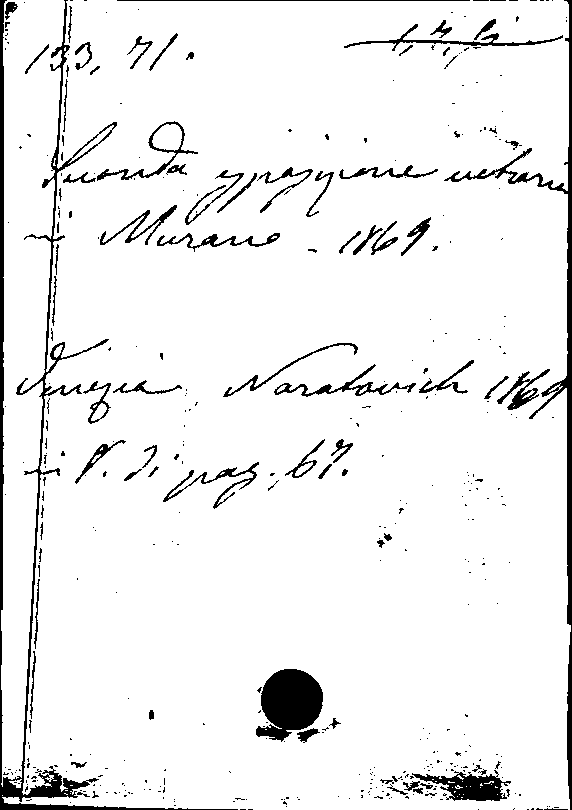 133, 71.
Seconda esposizione vetraria
in Murano - 1869.
Venezia, Naratovich 1869
in 8. di pag. 67.